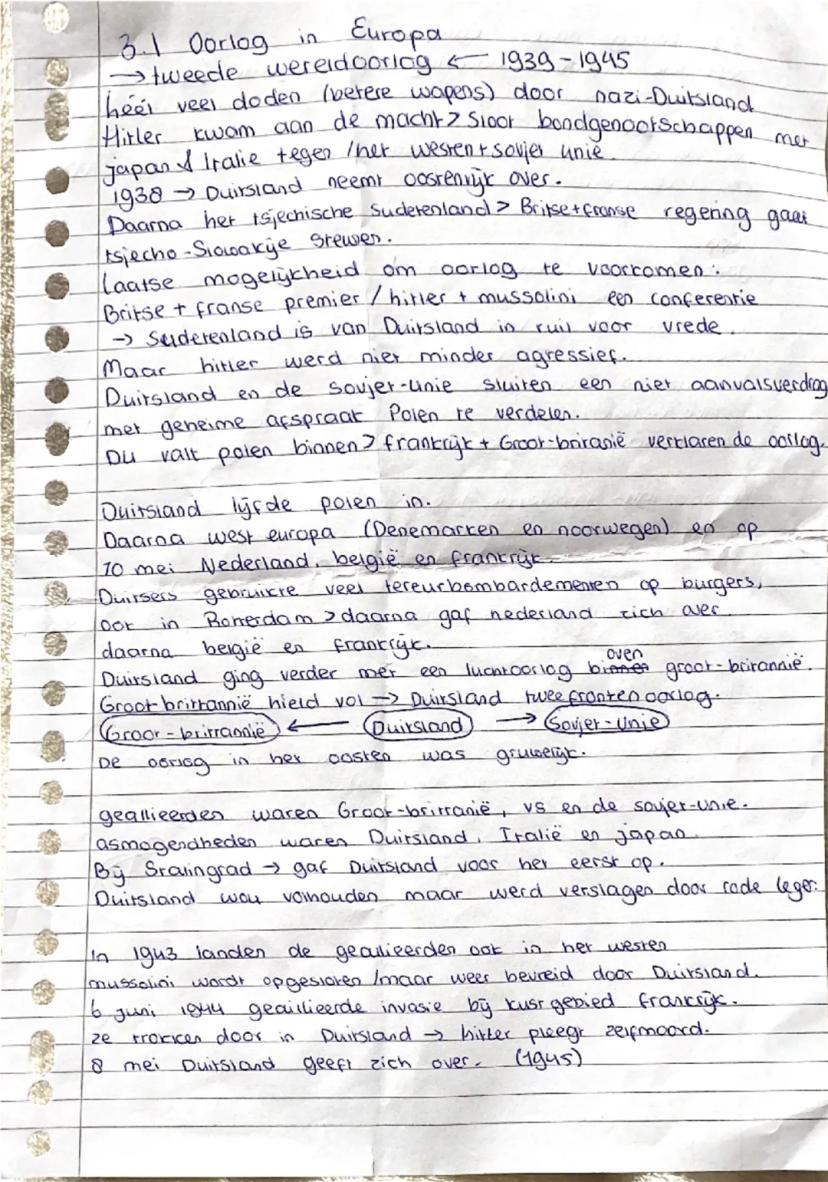 3.1 Oorlog in Europa
→ tweede wereldoorlog ← 1939-1945
héél veel doden (betere wapens) door nazi-Duitsland
Hitler kwam aan de macht > sloot bondgenootschappen met
japan & Italie tegen /het westen + sovjet unie.
1938 → Duitsland neemt oostenrijk over.
Daarna het tsjechische sudetenland > Britse + franse regering gaat
tsjecho-Slowakije steunen.
laatse mogelijkheid om oorlog te voorkomen:
Britse + franse premier / hitler + mussolini een conferentie
→ Sudetenland is van Duitsland in ruil voor vrede.
Maar hitler werd niet minder agressief.
Duitsland en de sovjet-unie sluiten een niet aanvalsverdrag
met geheime afspraak Polen te verdelen.
DU valt polen binnen > frankrijk + Groot-britanië verklaren de oorlog.
Duitsland lijfde polen in.
Daarna west europa (Denemarken en noorwegen) en op
10 mei Nederland, belgië en frankrijk.
Duitsers gebruikte veel terreurbombardementen op burgers,
ook in Rotterdam > daarna gaf nederland zich over
daarna belgië en frankrijk.
Duitsland ging verder met een luchtoorlog boven groot-britannië.
Groot brittannië hield vol → Duitsland twee fronten oorlog.
Groot-brittannië ← Duitsland → Sovjet-unie
De oorlog in het oosten was gruwelijk.
geallieerden waren Groot-brittanië, vs en de sovjet-unie.
asmogendheden waren Duitsland, Italië en japan.
Bij Stalingrad → gaf Duitsland voor het eerst op.
Duitsland wou volhouden maar werd verslagen door rode leger.
In 1943 landen de geallieerden ook in het westen
mussolini wordt opgesloten /maar weer bevreid door Duitsland.
6 juni 1944 geallieerde invasie bij kust gebied frankrijk.
ze trokken door in Duitsland → hitler pleegt zelfmoord.
8 mei Duitsland geeft zich over. (1945)